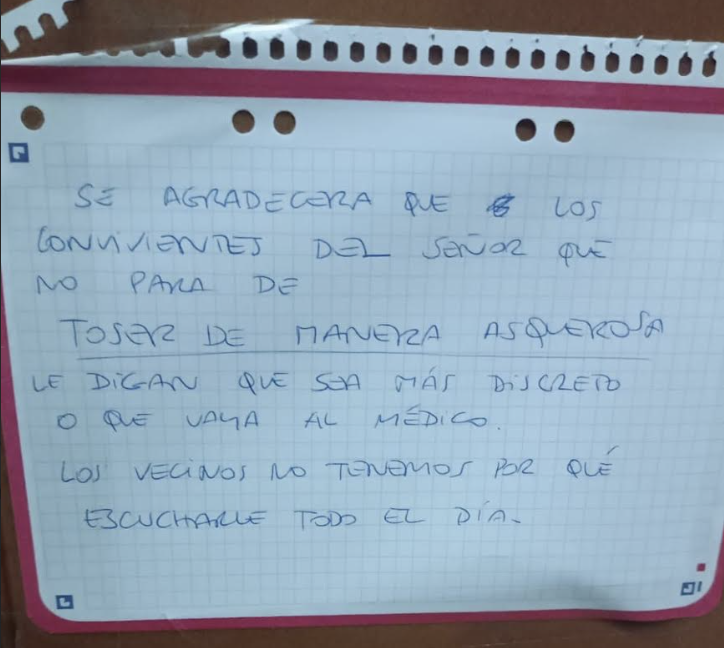 SE AGRADECERA QUE LOS
CONVIVIENTES DEL SEÑOR QUE
NO PARA DE
TOSER DE MANERA ASQUEROSA
LE DIGAN QUE SEA MÁS DISCRETO
O QUE VAYA AL MÉDICO.
LOS VECINOS NO TENEMOS POR QUÉ
ESCUCHARLE TODO EL DÍA.